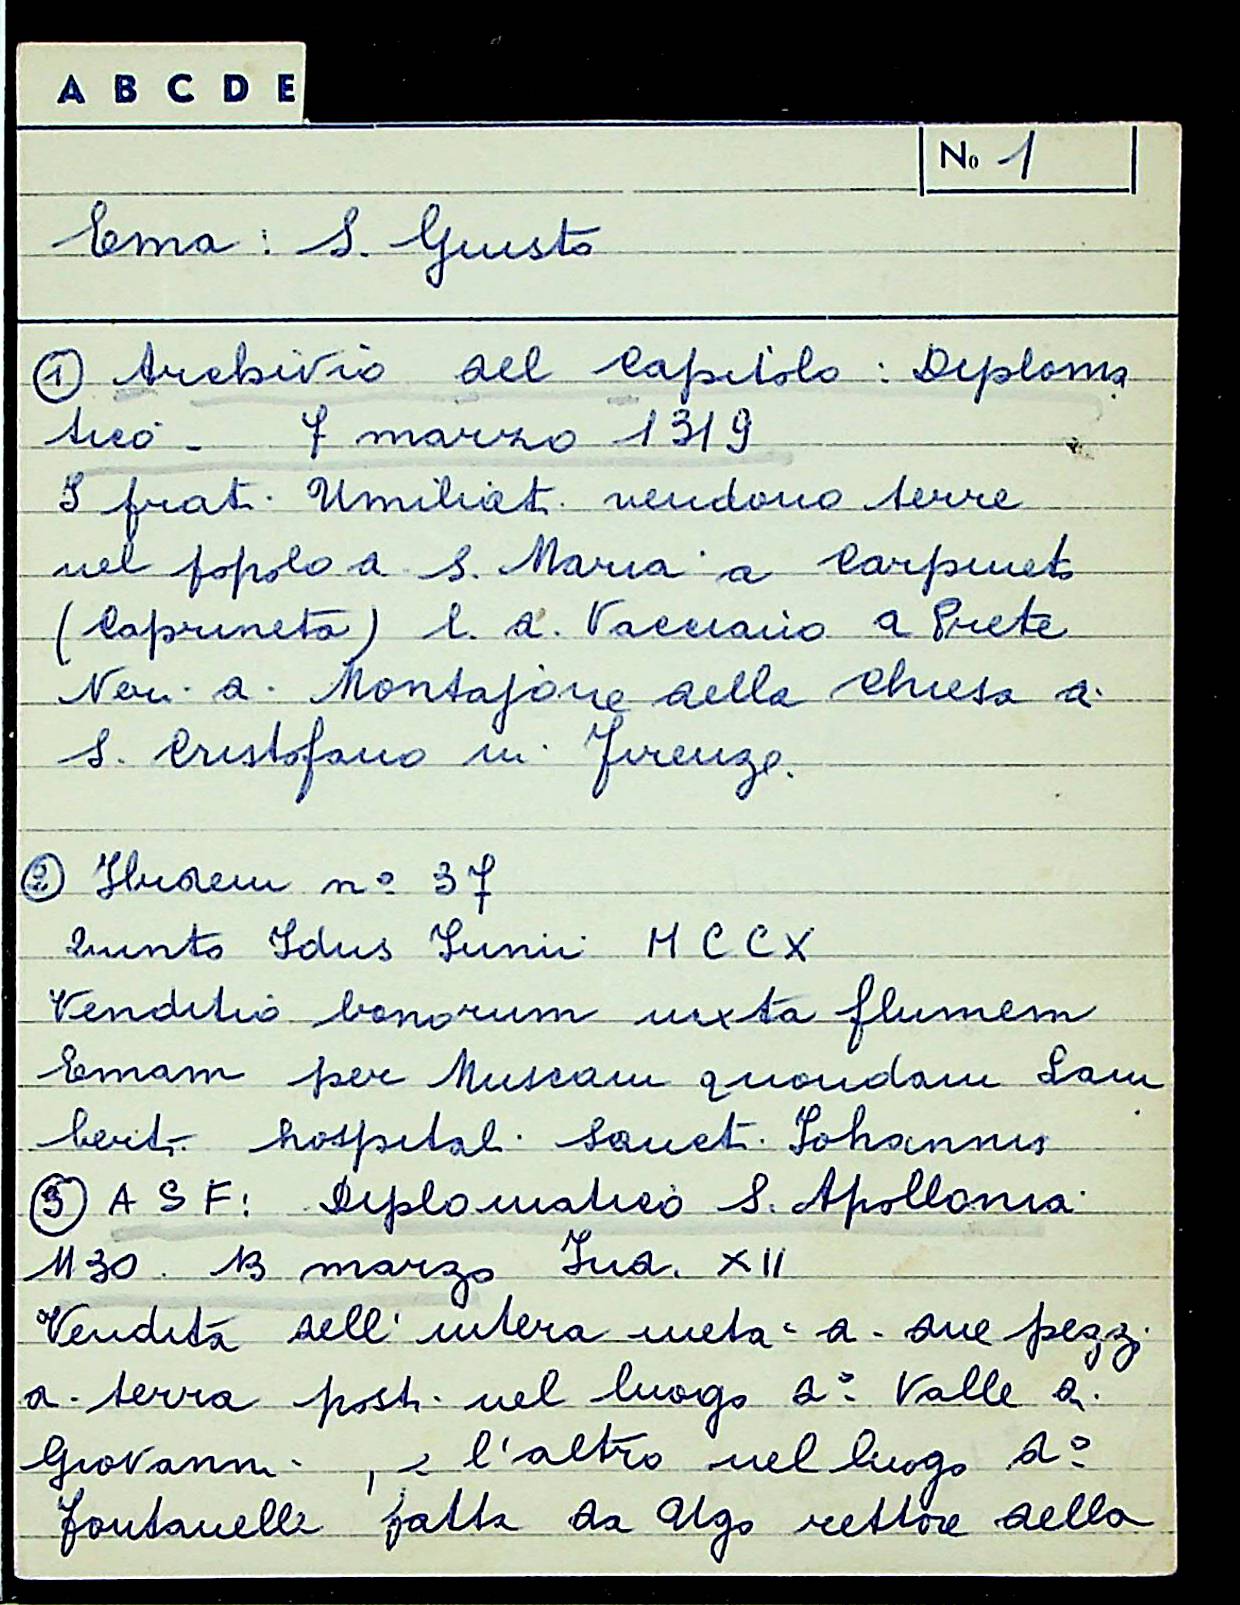 A B C D E
No 1
Ema : S. Giusto
① Archivio del Capitolo : Diploma
tico - 7 marzo 1319
I frati Umiliati vendono terre
nel popolo di S. Maria a Carpineto
(Caprineta) l. d. Vacciano a Prete
Neri di Montajone della Chiesa di
S. Cristofano in Firenze.
② Ibidem n° 37
Quinto Idus Junii MCCX
Venditio bonorum iuxta flumem
Emam per Muscam quondam Lam
berti hospital. Sancti Johannis
③ ASF: Diplomatico S. Apollonia
1130. 13 marzo Ind. XII
Vendita dell'intera metà di due pezzi
di terra posti nel luogo d° Valle di
Giovanni, e l'altro nel luogo d°
Fontanelle fatta da Ugo rettore della